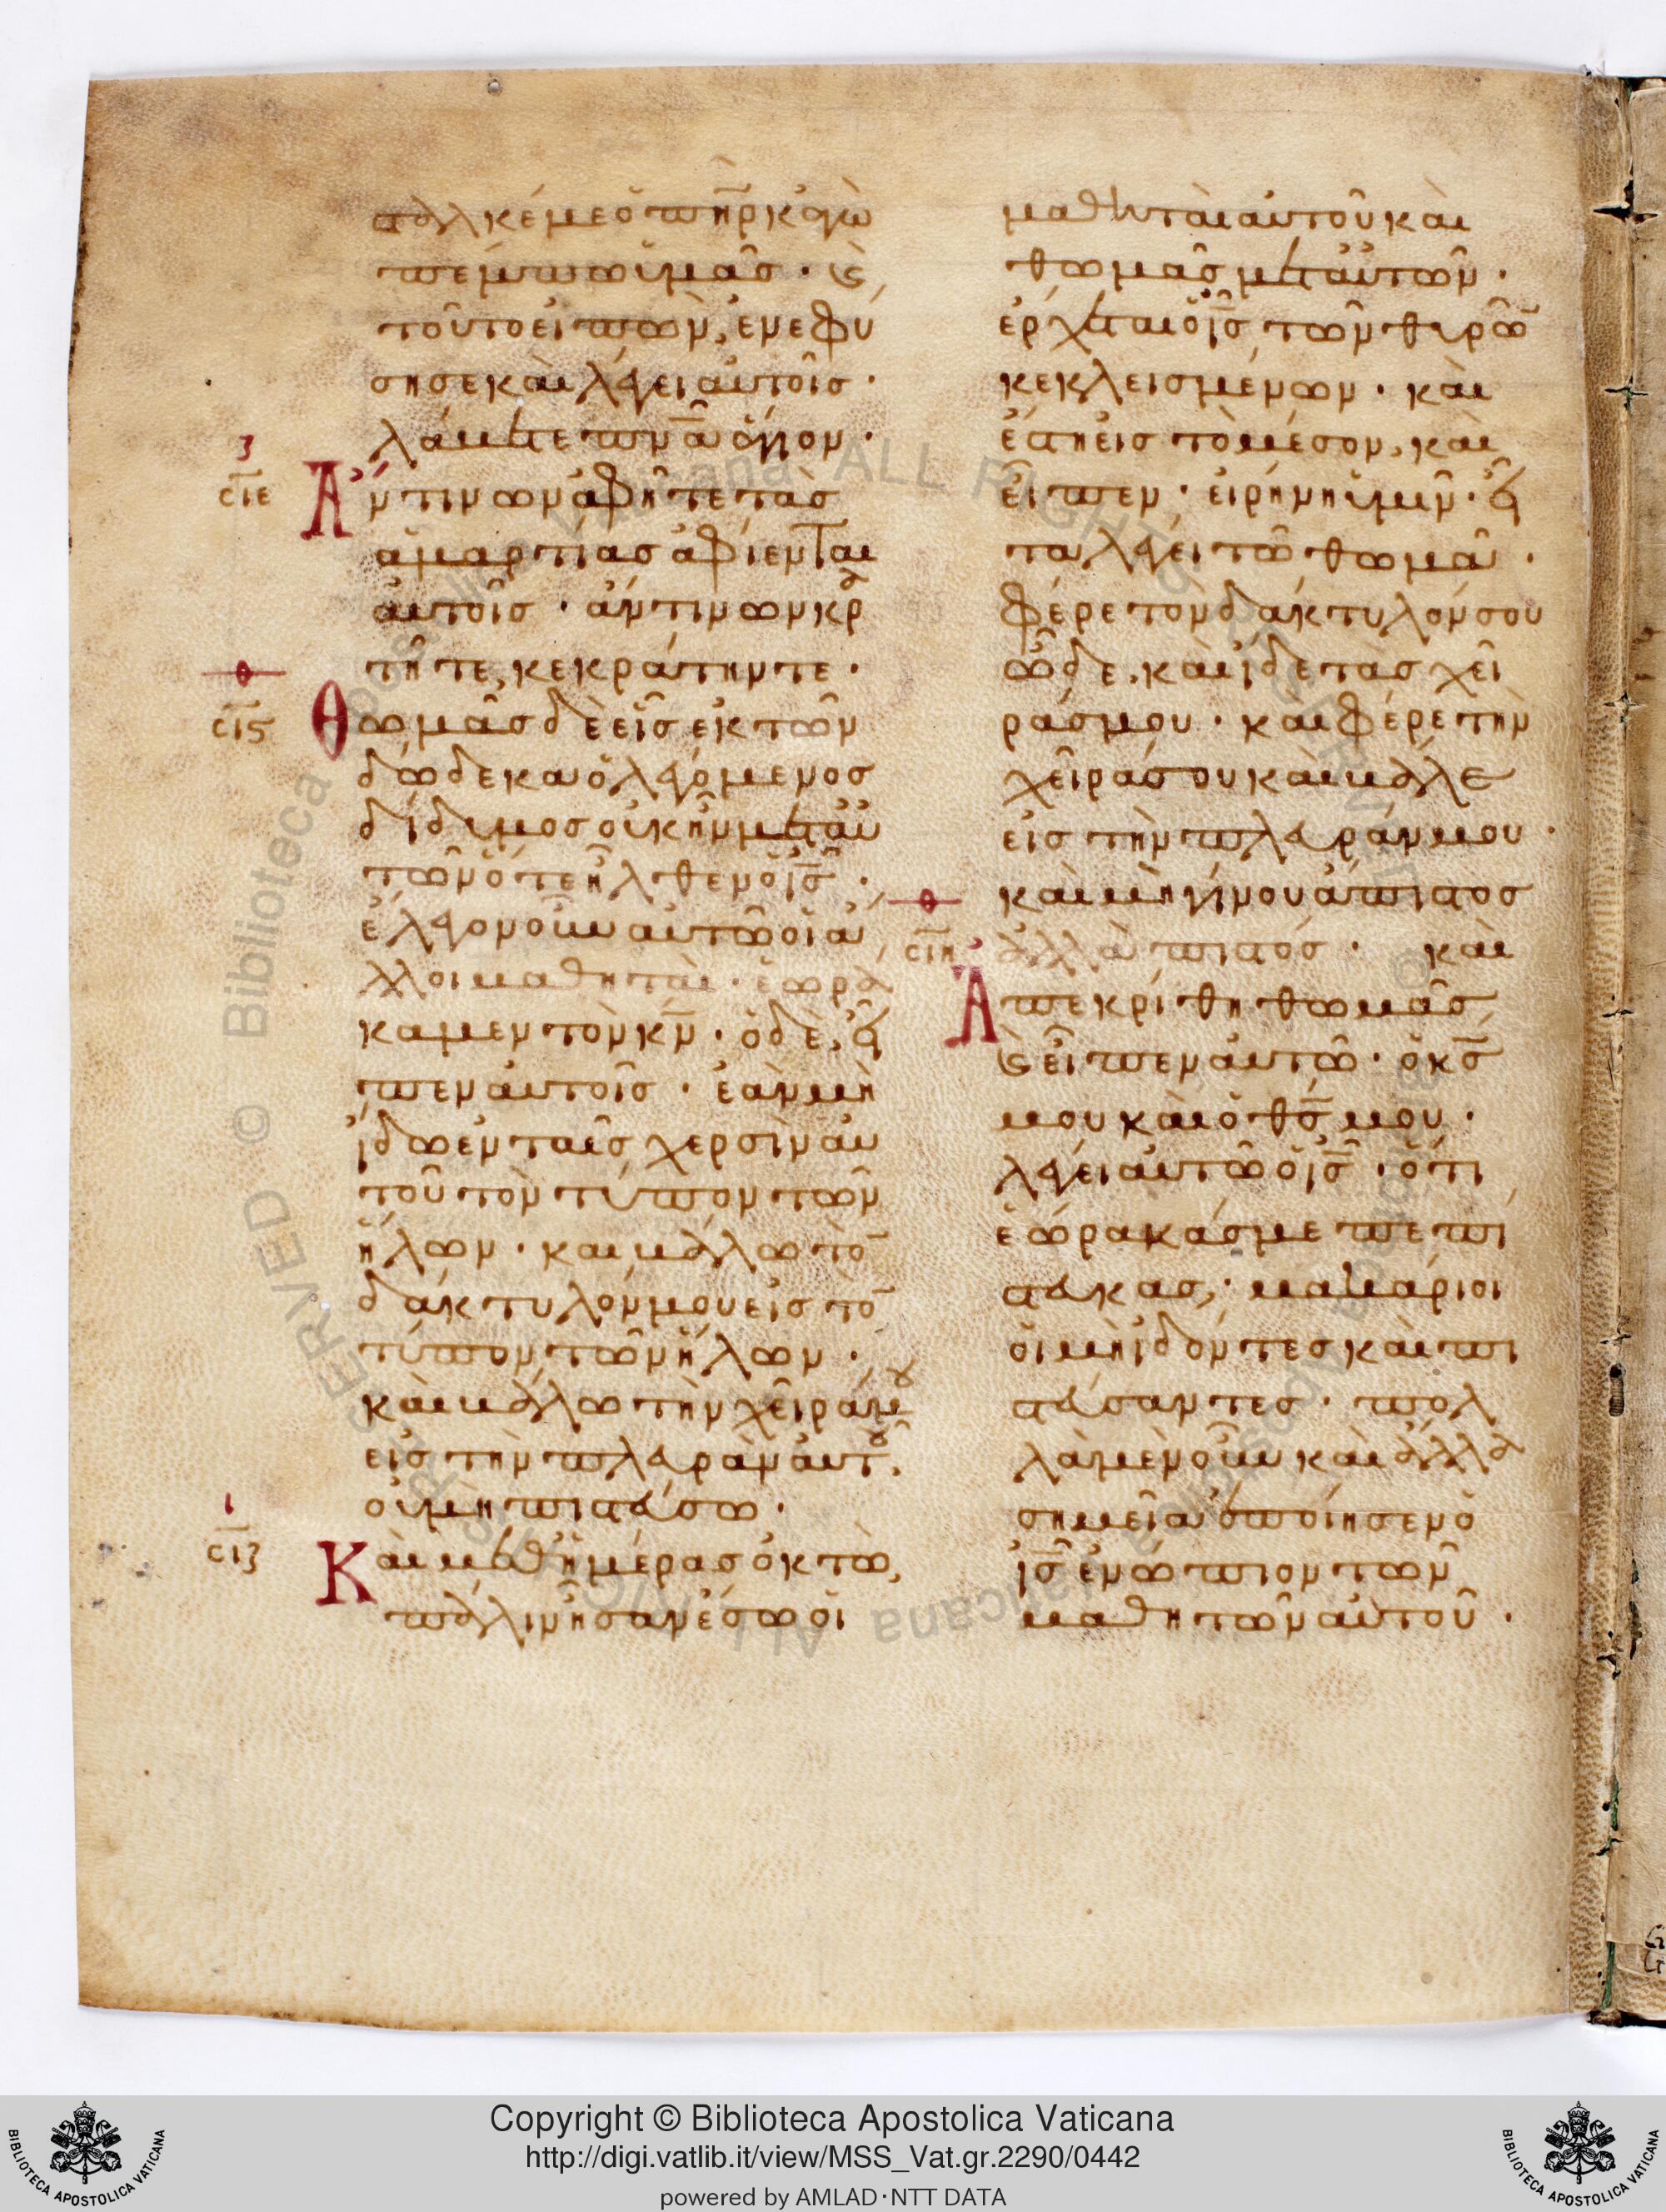 σταλκέ με ὁ πηρ κἀγὼ
πέμπω ὑμᾶς · καὶ
τοῦτο εἰπὼν, ἐνεφύ
σησε καὶ λέγει αὐτοῖς ·
λάβετε πνᾶ ἅγιον ·
ζ
σιε
Ἄν τινων ἀφῆτε τὰς
ἁμαρτίας ἀφίενται
αὐτοῖς · ἄν τινων κρα
τῆτε, κεκράτηνται ·
σις
Θωμᾶς δὲ εἷς ἐκ τῶν
δώδεκα ὁ λεγόμενος
δίδυμος οὐκ ἦν μετ αὐ
τῶν ὅτε ἦλθεν ὁ ις ·
ἔλεγον οὖν αὐτῶ οἱ ἄ
λλοι μαθηταὶ · ἑωρά
καμεν τὸν κν · ὁ δὲ, εἶ
πεν αὐτοῖς · ἐὰν μὴ
ἴδω ἐν ταῖς χερσὶν αὐ
τοῦ τὸν τύπον τῶν
ἥλων · καὶ βάλω τὸ
δάκτυλόν μου εἰς τὸ
τύπον τῶν ἥλων ·
καὶ βάλω τὴν χεῖρά μου
εἰς τὴν πλευρὰν αὐτοῦ,
οὐ μὴ πιστεύσω ·
ι
σιζ
Καὶ μεθ ἡμέρας ὀκτὼ,
πάλιν ἦσαν ἔσω οἱ
μαθηταὶ αὐτοῦ καὶ
θωμᾶς μετ αὐτῶν ·
ἔρχεται ὁ ις τῶν θυρῶ
κεκλεισμένων · καὶ
ἔστη εἰς τὸ μέσον, καὶ
εἶπεν · εἰρήνη ὑμῖν · εἶ
τα λέγει τῶ θωμᾶ ·
φέρε τὸν δάκτυλόν σου
ὧδε, καὶ ἴδε τὰς χεῖ
ράς μου · καὶ φέρε τὴν
χεῖρά σου καὶ βάλε
εἰς τὴν πλευράν μου ·
καὶ μὴ γίνου ἄπιστος
σιη
ἀλλὰ πιστός · καὶ
Ἀπεκρίθη θωμᾶς,
καὶ εἶπεν αὐτῶ · ὁ κς
μου καὶ ὁ θς μου ·
λέγει αὐτῶ ὁ ις · ὅτι
ἑώρακάς με πεπί
στευκας, · μακάριοι
οἱ μὴ ἰδόντες καὶ πι
στεύσαντες · πολ
λὰ μὲν οὖν καὶ ἄλλα
σημεῖα ἐποίησεν ὁ
ις ἐνώπιον τῶν
μαθητῶν αὐτοῦ ·
Copyright © Biblioteca Apostolica Vaticana
http://digi.vatlib.it/view/MSS_Vat.gr.2290/0442
powered by AMLAD·NTT DATA
BIBLIOTECA APOSTOLICA VATICANA
BIBLIOTECA APOSTOLICA VATICANA